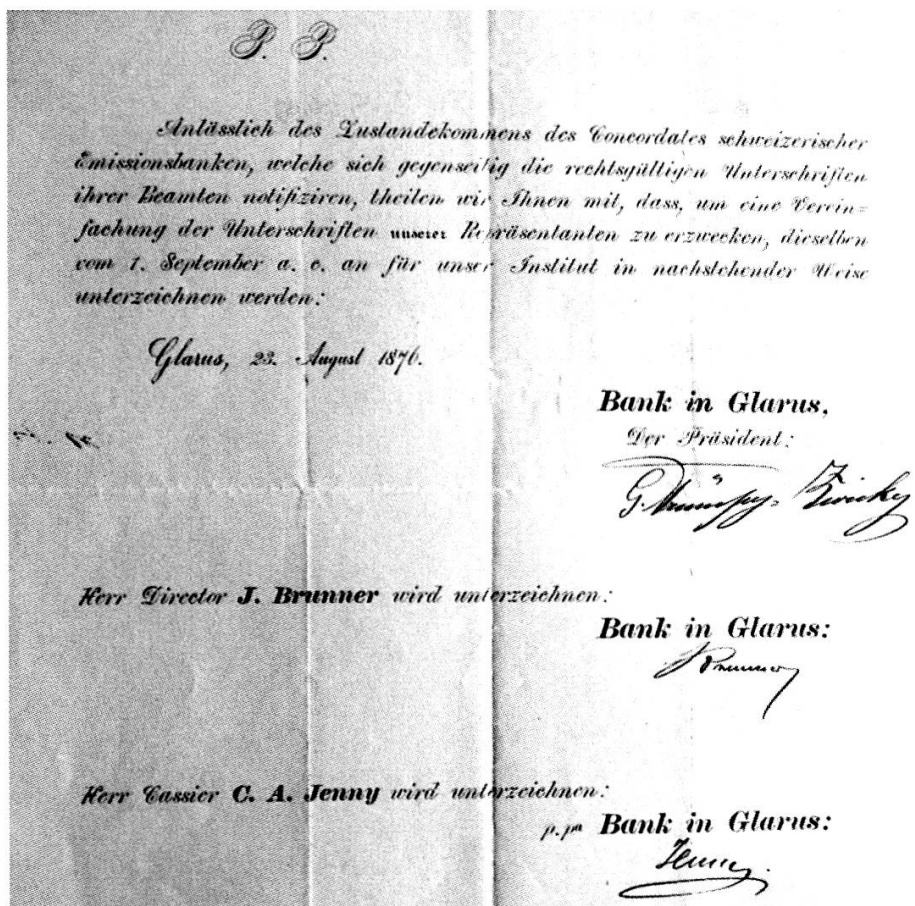 P. P.
Anlässlich des Zustandekommens des Concordates schweizerischer
Emissionsbanken, welche sich gegenseitig die rechtsgültigen Unterschriften
ihrer Beamten notifiziren, theilen wir Ihnen mit, dass, um eine Verein-
fachung der Unterschriften unserer Repräsentanten zu erzwecken, dieselben
vom 1. September a. c. an für unser Institut in nachstehender Weise
unterzeichnen werden:
Glarus, 23. August 1876.
Bank in Glarus,
Der Präsident:
Zwicky
Herr Director J. Brunner wird unterzeichnen:
Bank in Glarus:
Brunner
Herr Cassier C. A. Jenny wird unterzeichnen:
p.pa Bank in Glarus:
Jenny.